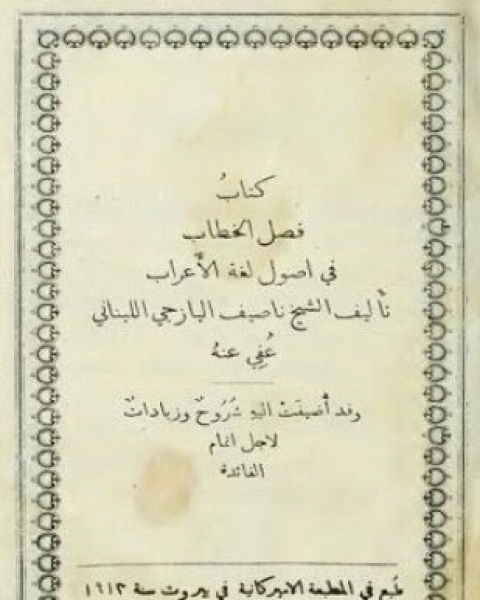 كتابُ
فصل الخطاب
في اصول لغة الأعراب
تأليف الشيخ ناصيف اليازجي اللبناني
عُفِي عنهُ
وقد أُضيفَتْ اليهِ شُرُوحٌ وزياداتٌ
لاجل اتمام
الفائدة
طُبِع في المطبعة الاميركانية في بيروت سنة ١٩١٣